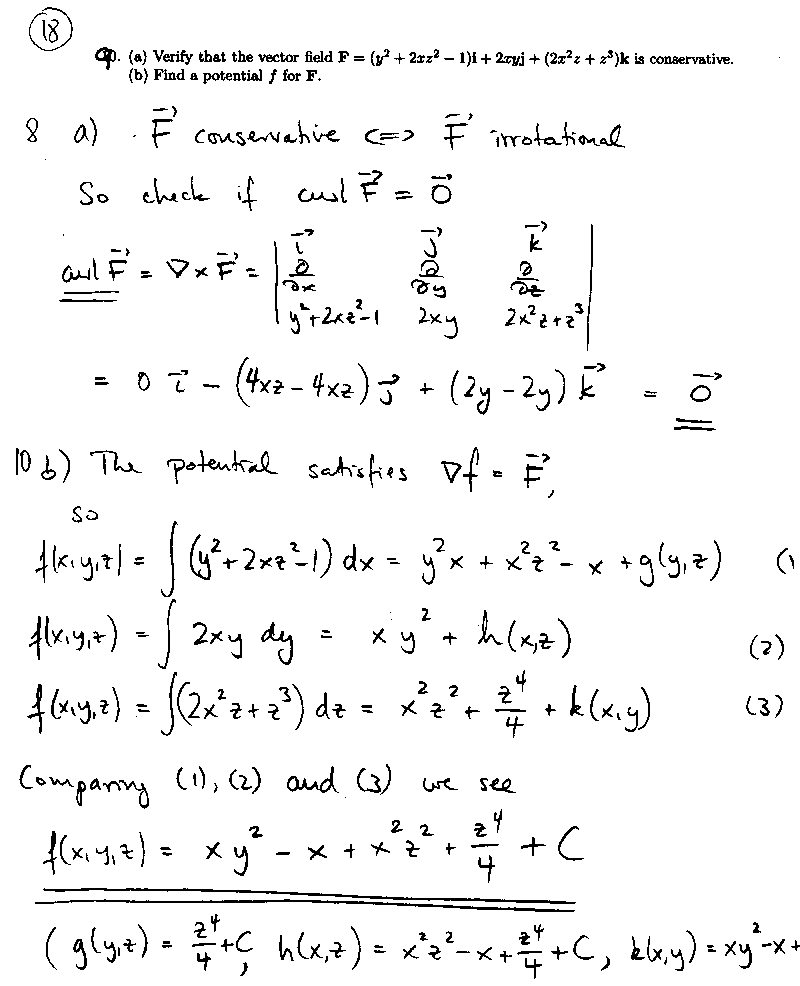 18
(a) Verify that the vector field F = (y² + 2xz² − 1)i + 2xyj + (2x²z + z³)k is conservative.
(b) Find a potential f for F.
8 a) . F⃗ conservative <=> F⃗ irrotational
So check if curl F⃗ = 0⃗
curl F⃗ = ∇ × F⃗ = | i⃗ j⃗ k⃗ |
∂/∂x ∂/∂y ∂/∂z
y²+2xz²-1 2xy 2x²z+z³
= 0 i⃗ - (4xz - 4xz) j⃗ + (2y - 2y) k⃗ = 0⃗
10 b) The potential satisfies ∇f = F⃗,
so
f(x,y,z) = ∫ (y²+2xz²-1) dx = y²x + x²z² - x + g(y,z) (1
f(x,y,z) = ∫ 2xy dy = xy² + h(x,z) (2)
f(x,y,z) = ∫(2x²z+z³) dz = x²z² + z⁴/4 + k(x,y) (3)
Comparing (1), (2) and (3) we see
f(x,y,z) = xy² - x + x²z² + z⁴/4 + C
( g(y,z) = z⁴/4 + C, h(x,z) = x²z² - x + z⁴/4 + C, k(x,y) = xy² - x +